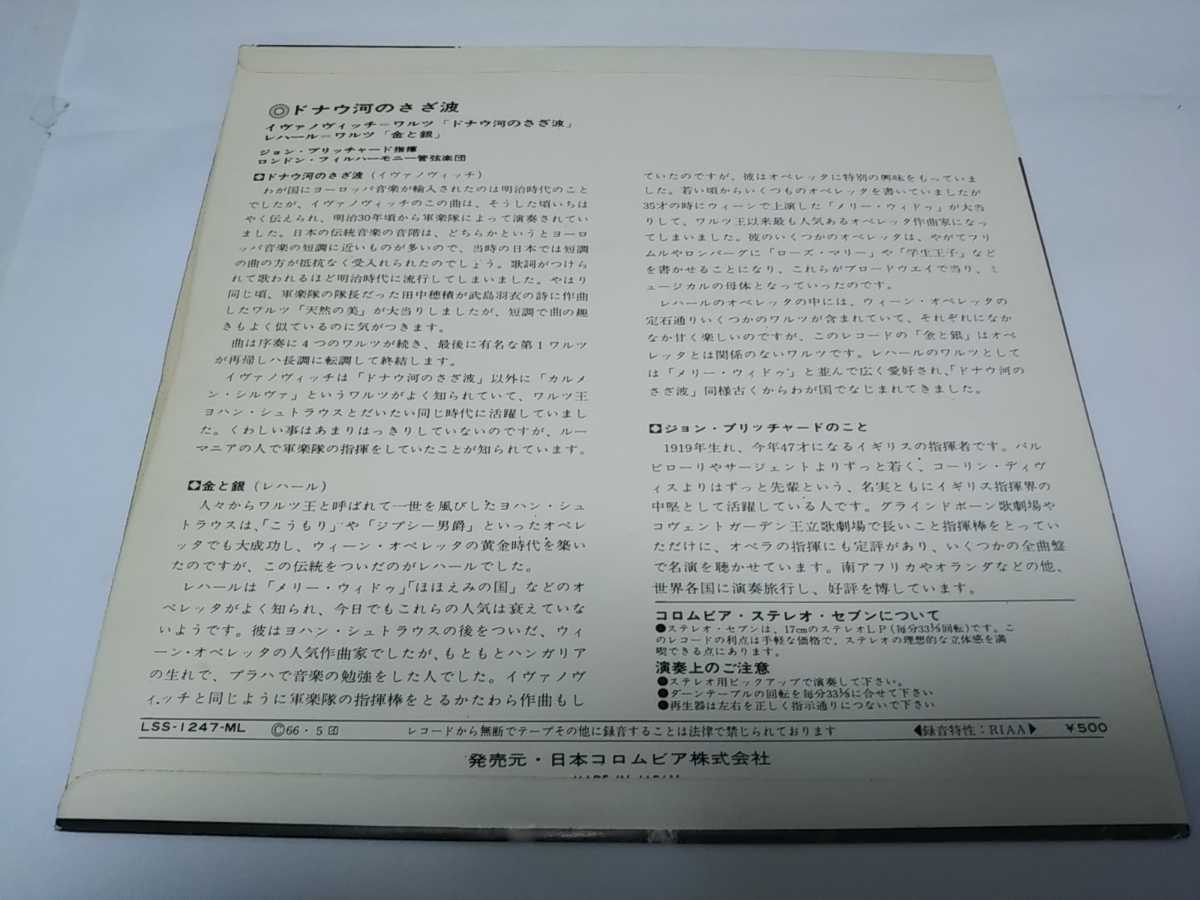 ◎ドナウ河のさざ波
イヴァノヴィッチ＝ワルツ「ドナウ河のさざ波」
レハール＝ワルツ「金と銀」
ジョン・プリッチャード指揮
ロンドン・フィルハーモニー管弦楽団
ドナウ河のさざ波（イヴァノヴィッチ）
わが国にヨーロッパ音楽が輸入されたのは明治時代のこと
でしたが、イヴァノヴィッチのこの曲は、そうした頃いちは
やく伝えられ、明治30年頃から軍楽隊によって演奏されてい
ました。日本の伝統音楽の音階は、どちらかというとヨーロ
ッパ音楽の短調に近いものが多いので、当時の日本では短調
の曲の方が抵抗なく受入れられたのでしょう。歌詞がつけら
れて歌われるほど明治時代に流行してしまいました。やはり
同じ頃、軍楽隊の隊長だった田中穂積が武島羽衣の詩に作曲
したワルツ「天然の美」が大当りしましたが、短調で曲の趣
きもよく似ているのに気がつきます。
曲は序奏に４つのワルツが続き、最後に有名な第１ワルツ
が再帰しハ長調に転調して終結します。
イヴァノヴィッチは「ドナウ河のさざ波」以外に「カルメ
ン・シルヴァ」というワルツがよく知られていて、ワルツ王
ヨハン・シュトラウスとだいたい同じ時代に活躍していまし
た。くわしい事はあまりはっきりしていないのですが、ルー
マニアの人で軍楽隊の指揮をしていたことが知られています。
金と銀（レハール）
人々からワルツ王と呼ばれて一世を風びしたヨハン・シュ
トラウスは、「こうもり」や「ジプシー男爵」といったオペレ
ッタでも大成功し、ウィーン・オペレッタの黄金時代を築い
たのですが、この伝統をついだのがレハールでした。
レハールは「メリー・ウィドゥ」「ほほえみの国」などのオ
ペレッタがよく知られ、今日でもこれらの人気は衰えていな
いようです。彼はヨハン・シュトラウスの後をついだ、ウィ
ーン・オペレッタの人気作曲家でしたが、もともとハンガリア
の生れで、プラハで音楽の勉強をした人でした。イヴァノヴ
ィッチと同じように軍楽隊の指揮棒をとるかたわら作曲もし
ていたのですが、彼はオペレッタに特別の興味をもっていま
した。若い頃からいくつものオペレッタを書いていましたが
35才の時にウィーンで上演した「メリー・ウィドゥ」が大当
りして、ワルツ王以来最も人気あるオペレッタ作曲家になっ
てしまいました。彼のいくつかのオペレッタは、やがてフリ
ムルやロンバーグに「ローズ・マリー」や「学生王子」など
を書かせることになり、これらがブロードウエイで当り、ミ
ュージカルの母体となっていったのです。
レハールのオペレッタの中には、ウィーン・オペレッタの
定石通りいくつかのワルツが含まれていて、それぞれになか
なか甘く楽しいのですが、このレコードの「金と銀」はオペ
レッタとは関係のないワルツです。レハールのワルツとして
は「メリー・ウィドゥ」と並んで広く愛好され、「ドナウ河の
さざ波」同様古くからわが国でなじまれてきました。
ジョン・プリッチャードのこと
1919年生れ、今年47才になるイギリスの指揮者です。バル
ビローリやサージェントよりずっと若く、コーリン・ディヴ
ィスよりはずっと先輩という、名実ともにイギリス指揮界の
中堅として活躍している人です。グラインドボーン歌劇場や
コヴェントガーデン王立歌劇場で長いこと指揮棒をとってい
ただけに、オペラの指揮にも定評があり、いくつかの全曲盤
で名演を聴かせています。南アフリカやオランダなどの他、
世界各国に演奏旅行し、好評を博しています。
コロムビア・ステレオ・セブンについて
●ステレオ・セブンは、17cmのステレオLP（毎分33⅓回転）です。こ
のレコードの利点は手軽な価格で、ステレオの理想的な立体感を満
喫できる点にあります。
演奏上のご注意
●ステレオ用ピックアップで演奏して下さい。
●ターンテーブルの回転を毎分33⅓に合せて下さい
●再生器は左右を正しく指示通りにつないで下さい
LSS-1247-ML ©66・5 レコードから無断でテープその他に録音することは法律で禁じられております ◀録音特性：RIAA▶ ¥500
発売元・日本コロムビア株式会社
MADE IN JAPAN